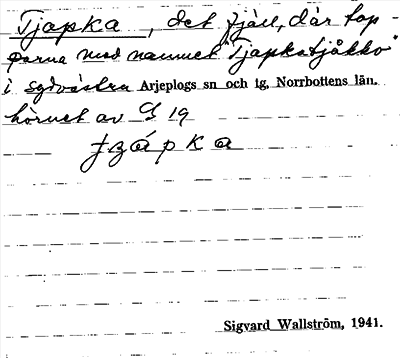 Tjapka, det fjäll, där top-
parna med namnet "Tjapkatjåkko"
i sydvästra Arjeplogs sn och tg, Norrbottens län.
hörnet av G 19
Sigvard Wallström, 1941.